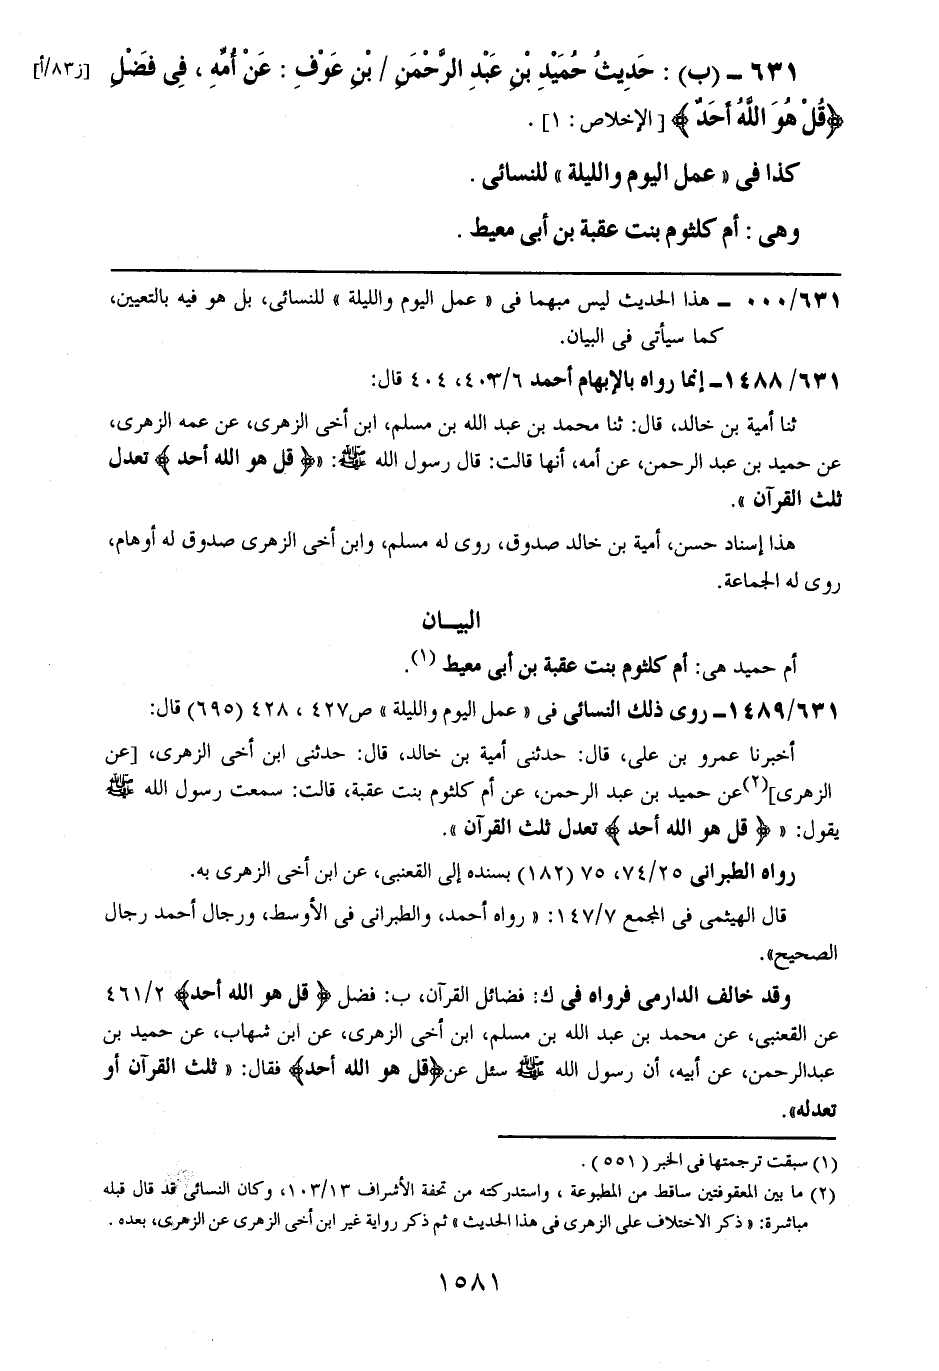 ٦٣١ ـ (ب) : حَدِيثُ حُمَيْدِ بْنِ عَبْدِ الرَّحْمَنِ / بْنِ عَوْفٍ : عَنْ أُمِّهِ ، فِى فَضْلِ [ز٨٣/أ]
﴿قُلْ هُوَ اللَّهُ أَحَدٌ ﴾ [ الإخلاص : ١] .
كذا فى « عمل اليوم والليلة » للنسائى .
وهى : أم كلثوم بنت عقبة بن أبى معيط .
٠٠٠/٦٣١ ـ هذا الحديث ليس مبهما فى « عمل اليوم والليلة » للنسائى، بل هو فيه بالتعيين،
كما سيأتى فى البيان.
١٤٨٨/٦٣١ـ إنما رواه بالإبهام أحمد ٤٠٣/٦، ٤٠٤ قال:
ثنا أمية بن خالد، قال: ثنا محمد بن عبد الله بن مسلم، ابن أخى الزهرى، عن عمه الزهرى،
عن حميد بن عبد الرحمن، عن أمه، أنها قالت: قال رسول الله ﷺ: «﴿ قل هو الله أحد ﴾ تعدل
ثلث القرآن ».
هذا إسناد حسن، أمية بن خالد صدوق، روى له مسلم، وابن أخى الزهرى صدوق له أوهام،
روى له الجماعة.
البيـــان
أم حميد هى: أم كلثوم بنت عقبة بن أبى معيط (١).
١٤٨٩/٦٣١ـ روى ذلك النسائى فى « عمل اليوم والليلة » ص٤٢٧ ، ٤٢٨ (٦٩٥) قال:
أخبرنا عمرو بن على، قال: حدثنى أمية بن خالد، قال: حدثنى ابن أخى الزهرى، [عن
الزهرى](٢)عن حميد بن عبد الرحمن، عن أم كلثوم بنت عقبة، قالت: سمعت رسول الله ﷺ
يقول: « ﴿ قل هو الله أحد ﴾ تعدل ثلث القرآن ».
رواه الطبرانى ٧٤/٢٥، ٧٥ (١٨٢) بسنده إلى القعنبى، عن ابن أخى الزهرى به.
قال الهيثمى فى المجمع ١٤٧/٧: « رواه أحمد، والطبرانى فى الأوسط، ورجال أحمد رجال
الصحيح».
وقد خالف الدارمى فرواه فى ك: فضائل القرآن، ب: فضل ﴿ قل هو الله أحد﴾ ٤٦١/٢
عن القعنبى، عن محمد بن عبد الله بن مسلم، ابن أخى الزهرى، عن ابن شهاب، عن حميد بن
عبدالرحمن، عن أبيه، أن رسول الله ﷺ سئل عن﴿قل هو الله أحد﴾ فقال: « ثلث القرآن أو
تعدله».
(١) سبقت ترجمتها فى الخبر ( ٥٥١) .
(٢) ما بين المعقوفتين ساقط من المطبوعة ، واستدركته من تحفة الأشراف ١٠٣/١٣، وكان النسائى قد قال قبله
مباشرة: « ذكر الاختلاف على الزهرى فى هذا الحديث » ثم ذكر رواية غير ابن أخى الزهرى عن الزهرى، بعده .
١٥٨١